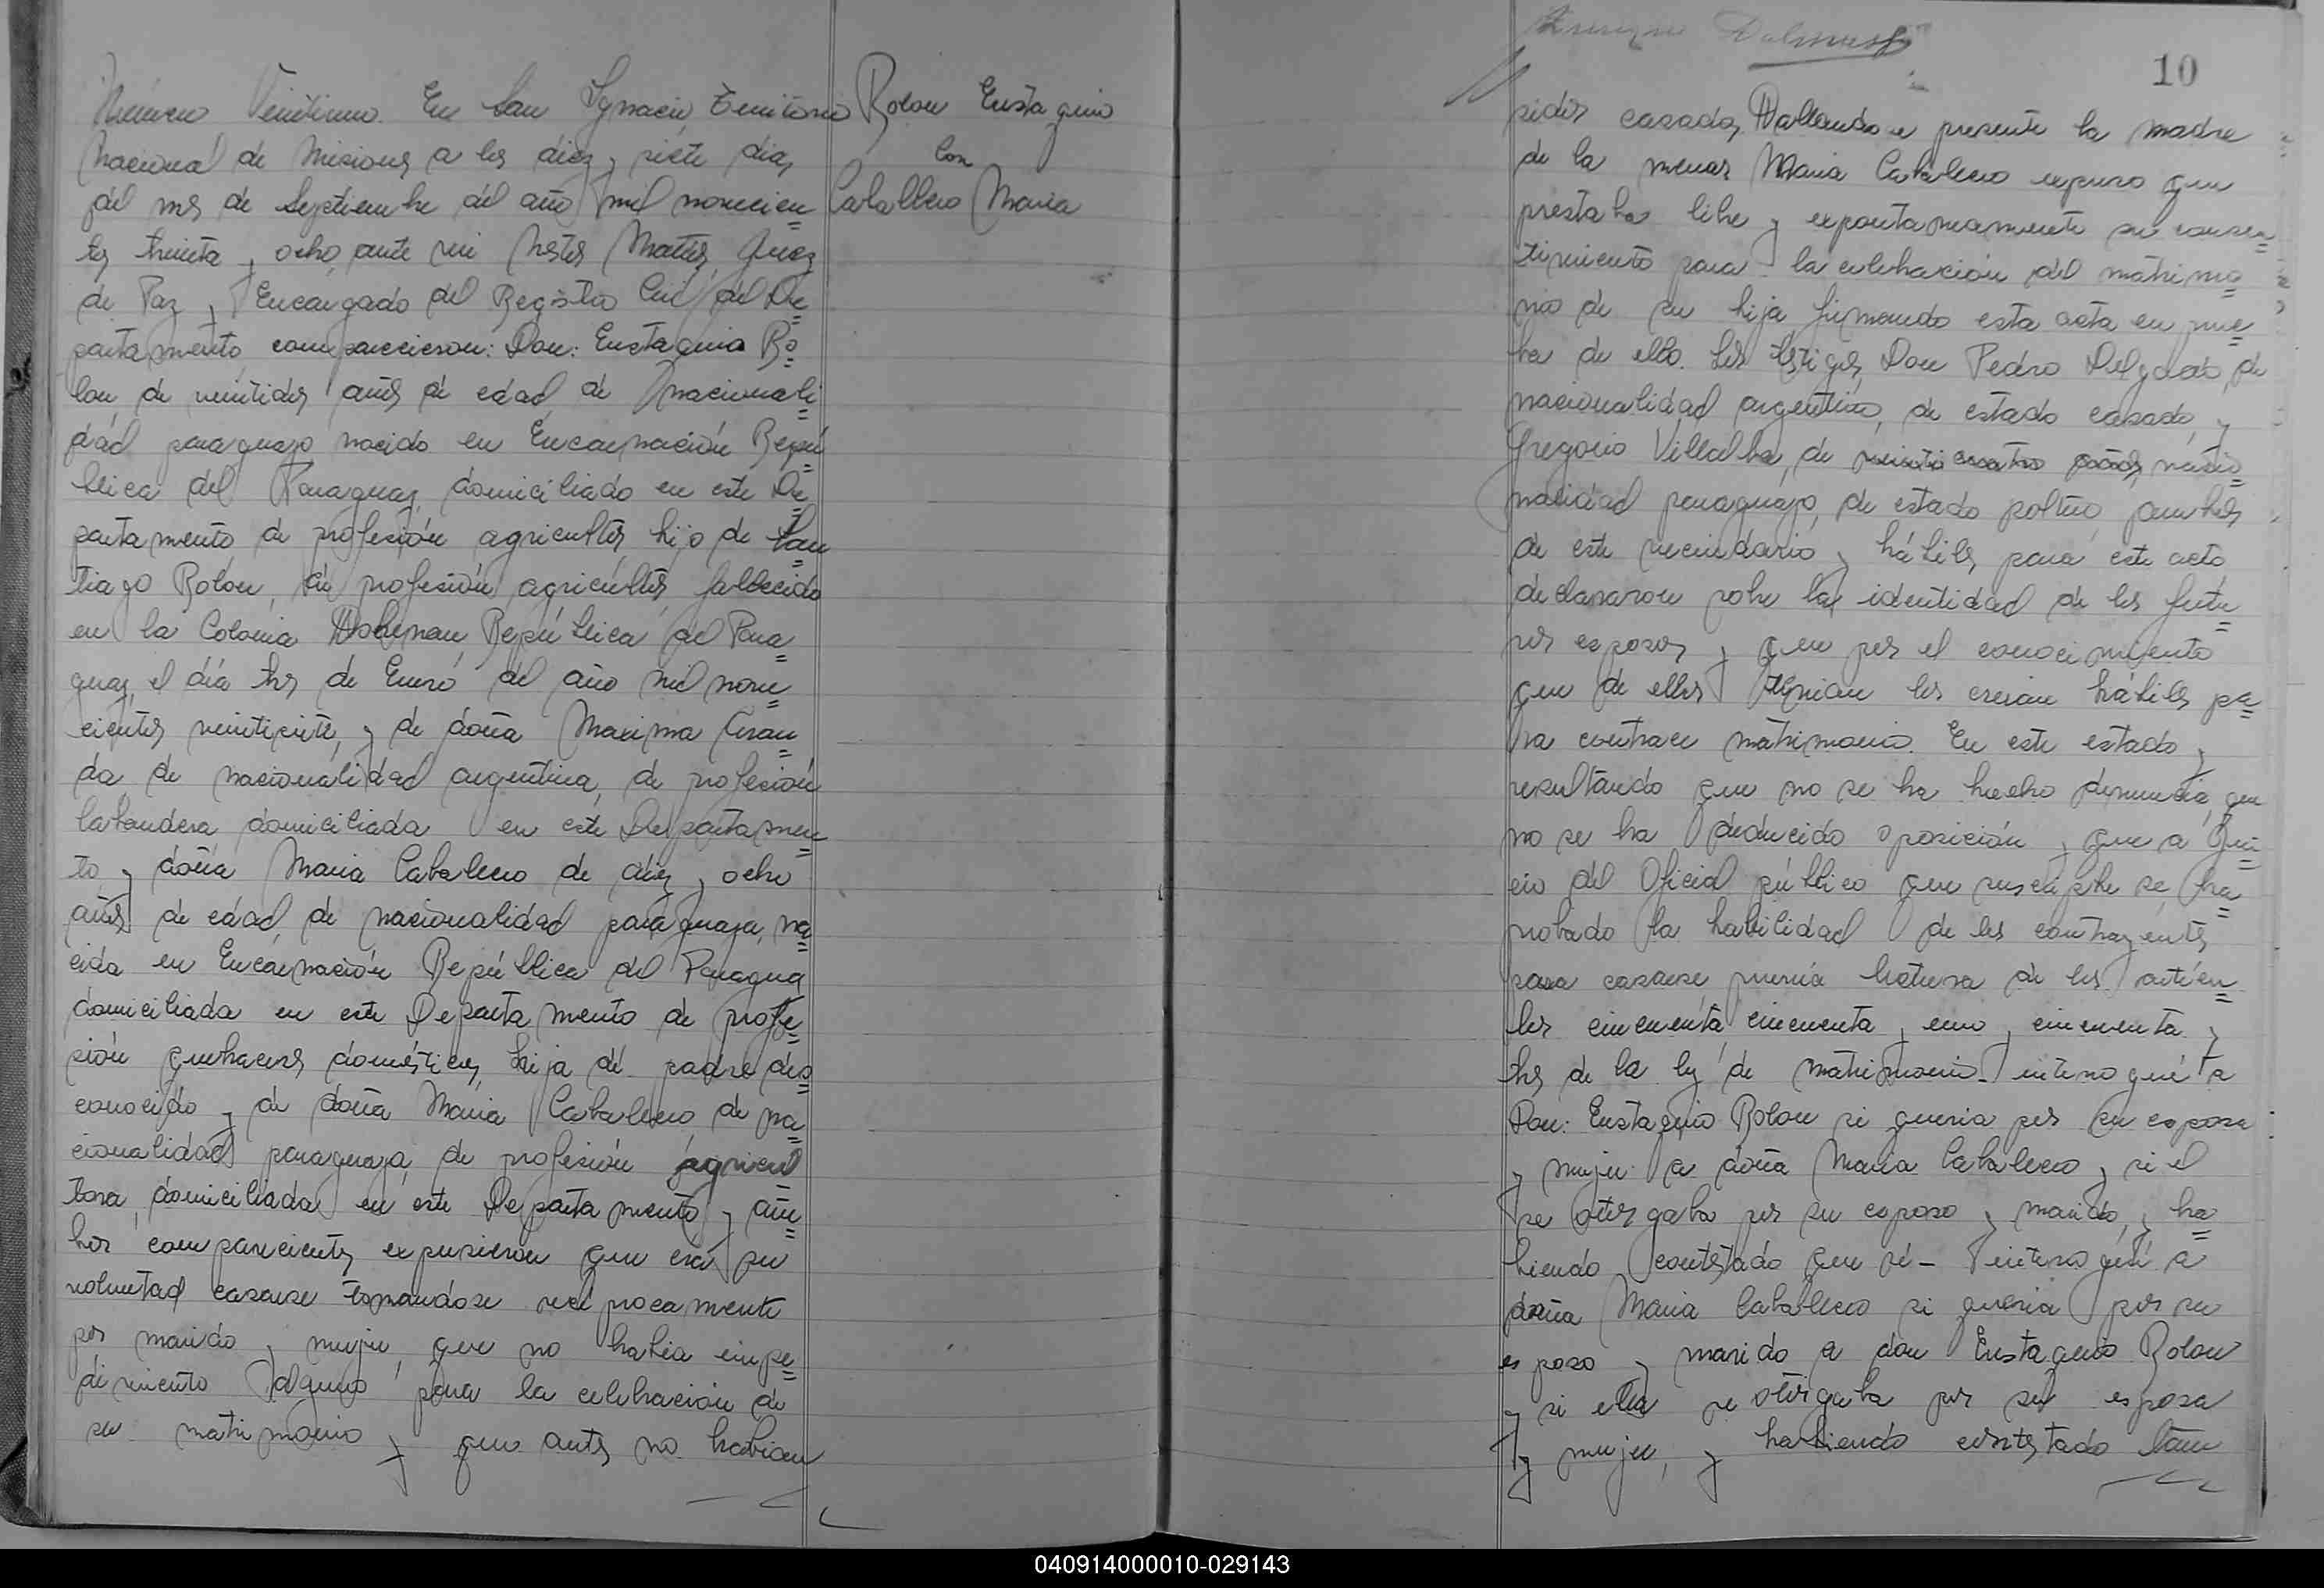 Número Veintiuno. En San Ygnacio Territorio
Nacional de Misiones a los diez y siete dias
del mes de Septiembre del año mil novecien=
tos treinta y ocho, ante mi Nestor Juez
de Paz y Encargado del Registro Civil del De=
partamento, comparecieron: Don: Eustaquio Ro=
lon, de veintidos años de edad, de nacionali=
dad paraguayo, nacido en Encarnación Repú=
blica del Paraguay, domiciliado en este De=
partamento, de profesión agricultor, hijo de San=
tiago Rolon, de profesión agricultor, fallecido
en la Colonia Hohenau, República del Para=
guay, el día tres de Enero del año mil nove=
cientos veintisiete, y de doña Maxima
da de nacionalidad argentina, de profesión
labandera, domiciliada en este Departamen=
to y doña Maria Caballero de diez y ocho
años de edad, de nacionalidad paraguaya, na=
cida en Encarnación República del Paragua
domiciliada en este Departamento de profe=
sión quehaceres domésticos, hija de padre des=
conocido y de doña Maria Caballero, de na=
cionalidad paraguaya, de profesión agricul=
tora, domiciliada en este Departamento, y am=
bos comparecientes expusieron que era su
voluntad casarse tomandose reciprocamente
por marido y mujer, que no habia impe=
dimento alguno para la celebración de
su matrimonio y que antes no habian
Rolon Eustaquio
Con
Caballero Maria
10
sidos casados, Hallandose presente la madre
de la menor Maria Caballero expuso que
prestaba libre y expontaneamente su consen=
timiento para la celebración del matrimo=
nio de su hija firmando esta acta en prue=
ba de ello. Los testigos, Don Pedro Delgado, de
nacionalidad argentino, de estado casado, y
Gregorio Villalba, de veinticuatro años, nacio=
nalidad paraguayo, de estado soltero, ambos
de este vecindario y hábiles para este acto
declararon sobre la identidad de los futu=
ros esposos y que por el conocimiento
que de ellos tenian los creian hábiles pa=
ra contraer matrimonio. En este estado y
resultando que no se ha hecho denuncia, que
no se ha deducido oposición y que a jui=
cio del Oficial público que suscribe se ha
probado la habilidad de los contrayentes
para casarse previa lectura de los artícu=
los cincuenta, cincuenta y uno y cincuenta y
tres de la ley de matrimonio. interrogué a
Don: Eustaquio Rolon si queria por su esposa
y mujer a doña Maria Caballero y si el
se otorgaba por su esposo y marido, y ha=
biendo contestado que si - interrogué a
doña Maria Caballero si queria por su
esposo y marido a don Eustaquio Rolon
y si ella se otorgaba por su esposa
y mujer, y habiendo contestado tam
040914000010-029143